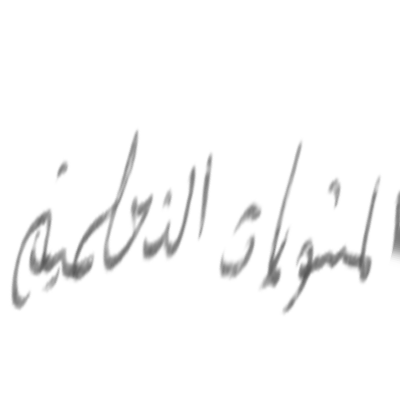 المستويات التعليمية